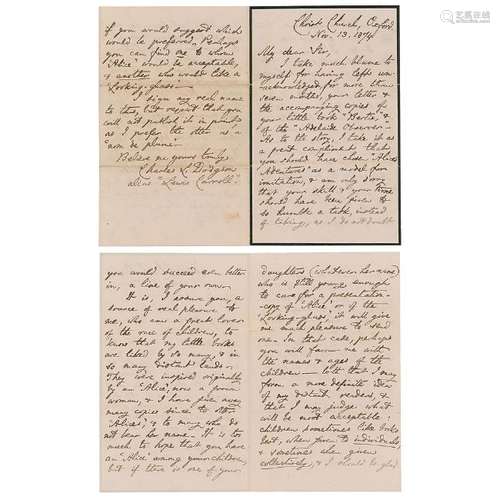 Christ Church, Oxford.
Nov. 13. 1874
My dear Sir,
I take much blame to
myself for having left un-
acknowledged, for more than
seven months, your letter &
the accompanying copies of
your little book &
of the "Adelaide Observer".
As to the story, I take it as
a great compliment that
you should have chosen "Alice's
Adventures" as a model for
imitation, & am only sorry
that your skill & your time
should have been given to
so humble a task, instead
of taking, as I do not doubt
you would succeed even better
in, a line of your own.
It is, I assure you, a
source of real pleasure to
me, who am a great lover
of the race of children, to
know that my little books
are liked by so many, & in
so many distant lands.
They were inspired originally
by an "Alice", now a grown
woman, & I have given away
many copies since to other
"Alices", & to many who do
not bear the name. It is too
much to hope that you have
an "Alice" among your children,
but if there is one of your
daughters (whatever her name)
who is still young enough
to care for a presentation-
copy of "Alice" or of the
"Looking-glass", it will give
me much pleasure to send
one. In that case, perhaps
you will favour me with
the names & ages of the
children — both that I may
form a more definite idea of
my distant readers, &
that I may judge what
will be most acceptable:
children sometimes like books
best, when given to individuals,
& sometimes when given
collectively, & I should be glad
if you would suggest which
would be preferred. Perhaps
you can find one to whom
"Alice" would be acceptable,
& another who would like a
"Looking-glass".
I sign my real name
to this, but request that you
will not publish it in print,
as I prefer the other as a
"nom de plume".
Believe me yours truly,
Charles L. Dodgson
alias "Lewis Carroll."